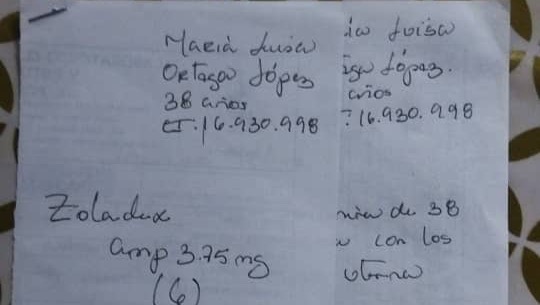 María Luisa
Ortega López
38 años
CI: 16.930.998
Zoladex
amp 3.75 mg
(6)
ía Luisa
ega López.
años
: 16.930.998
de 38
con los
uterina